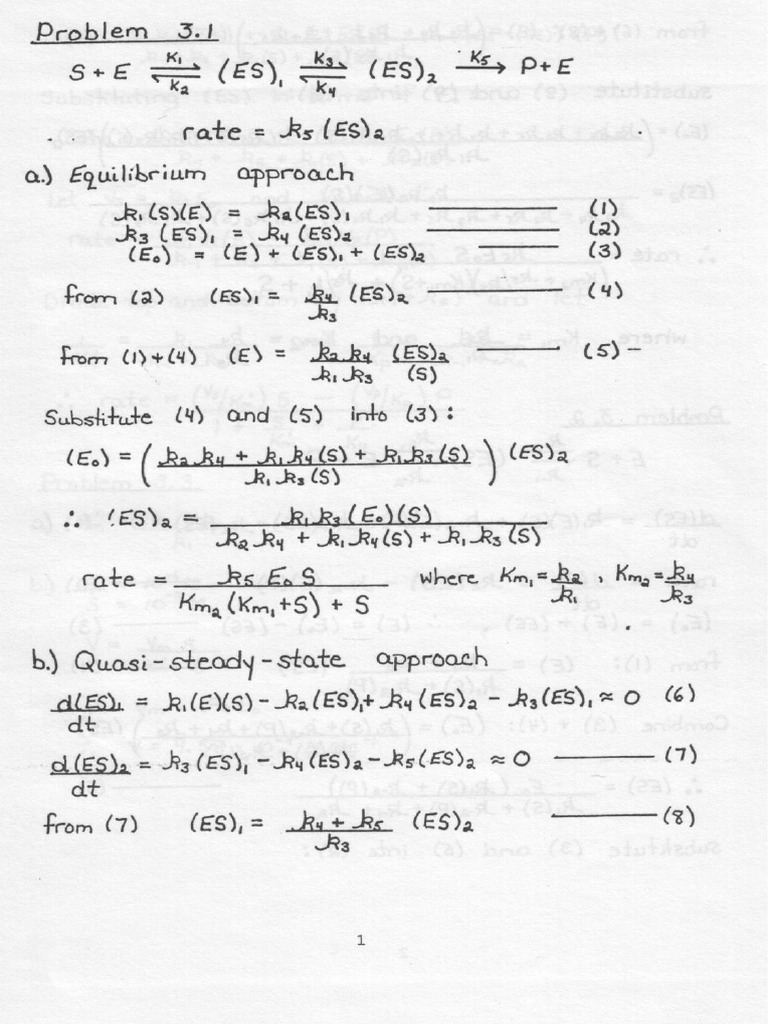 Problem 3.1
S + E ⇌ (ES)₁ ⇌ (ES)₂ → P+E
k₁ k₂ k₃ k₄ k₅
rate = k₅(ES)₂
a.) Equilibrium approach
k₁(S)(E) = k₂(ES)₁ (1)
k₃(ES)₁ = k₄(ES)₂ (2)
(E₀) = (E) + (ES)₁ + (ES)₂ (3)
from (2) (ES)₁ = k₄/k₃ (ES)₂ (4)
from (1)+(4) (E) = k₂k₄/k₁k₃ (ES)₂/(S) (5)
Substitute (4) and (5) into (3):
(E₀) = ( k₂k₄ + k₁k₄(S) + k₁k₃(S) / k₁k₃(S) ) (ES)₂
∴ (ES)₂ = k₁k₃(E₀)(S) / k₂k₄ + k₁k₄(S) + k₁k₃(S)
rate = k₅E₀S / Km₂(Km₁+S) + S where Km₁ = k₂/k₁ Km₂ = k₄/k₃
b.) Quasi-steady-state approach
d(ES)₁/dt = k₁(E)(S) - k₂(ES)₁ + k₄(ES)₂ - k₃(ES)₁ ≈ 0 (6)
d(ES)₂/dt = k₃(ES)₁ - k₄(ES)₂ - k₅(ES)₂ ≈ 0 (7)
from (7) (ES)₁ = k₄ + k₅/k₃ (ES)₂ (8)
1